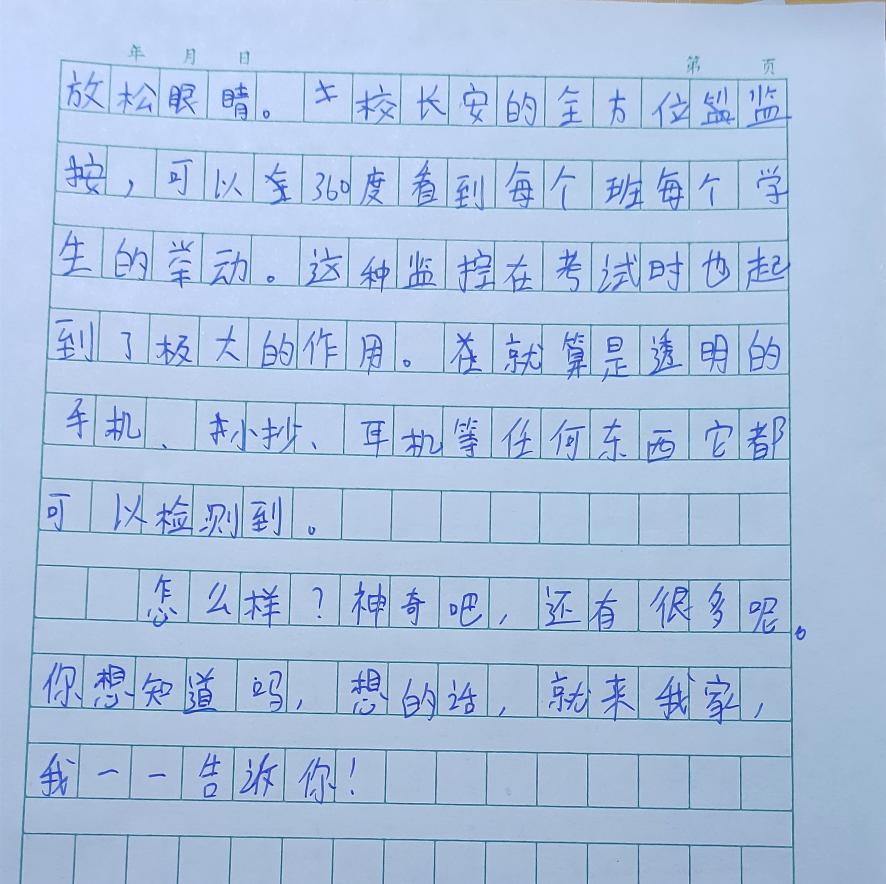 年 月 日 第 页
放松眼睛。校长安的全方位监
控，可以全360度看到每个班每个学
生的举动。这种监控在考试时也起
到了极大的作用。就算是透明的
手机、小抄、耳机等任何东西它都
可以检测到。
怎么样？神奇吧，还有很多呢。
你想知道吗，想的话，就来我家，
我一一告诉你！